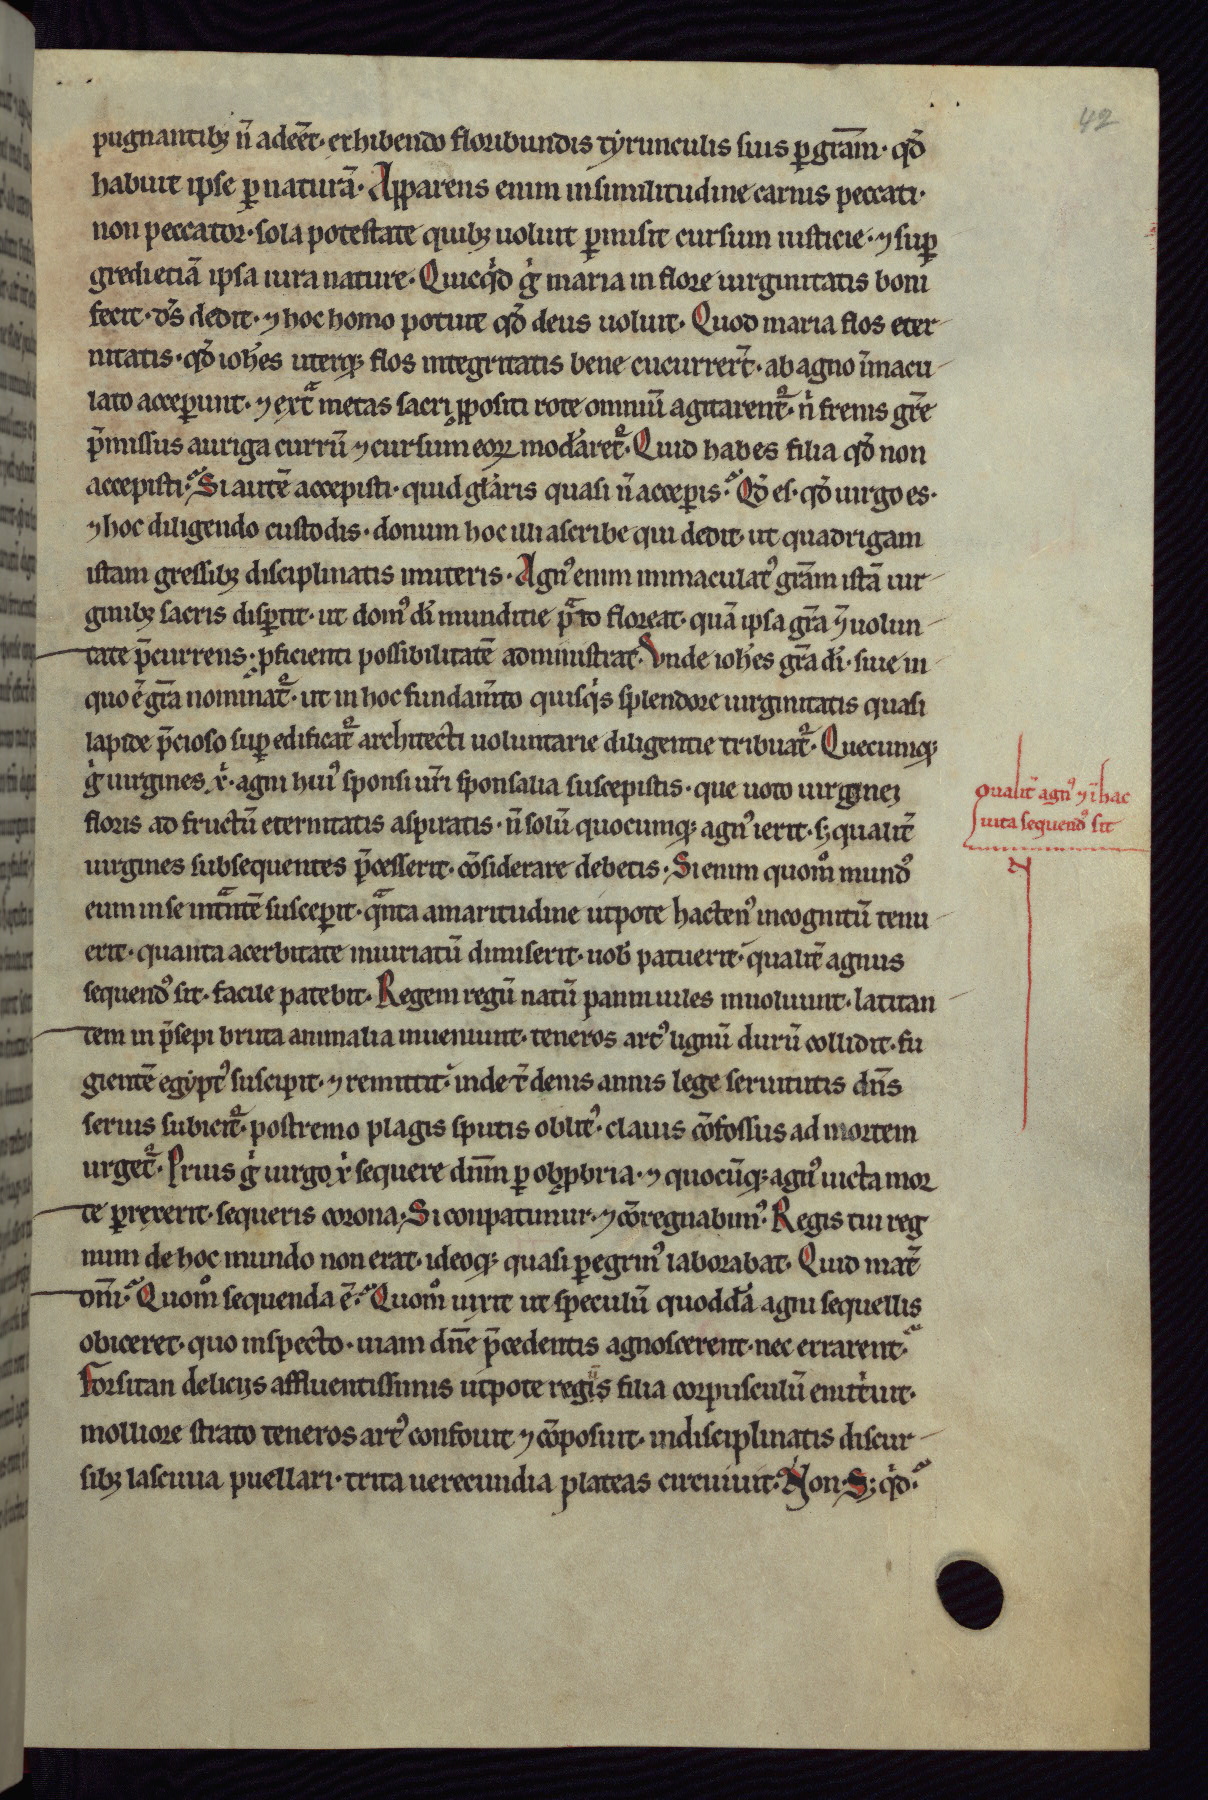 42
pugnantibꝫ n̄ adeēt· exhibendo floribundis tyrunculis suis ꝑ gr̄am· qd̄
habuit ipse ꝑ naturā· Apparens enim in similitudine carnis peccati·
non peccator· sola potestate quibꝫ uoluit ꝑmisit cursum iusticie· ⁊ suꝑ
gredietiā ipsa iura nature· Quicqͥd gͥ maria in flore uirginitatis boni
fecit· dс̄ dedit· ⁊ hoc homo potuit qd̄ deus uoluit· Quod maria flos eter
nitatis· qd̄ ioh̄es uterqꝫ flos integritatis bene cucurrer̄t· ab agno īmacu
lato acceperunt· ⁊ ext̄ metas sacri ꝓpositi rote omniū agitarent᷑· nͥ frenis gr̄e
p̄missus auriga currū ⁊ cursum eoꝝ moda̓ret᷑· Quid habes filia qd̄ non
accepisti? Si autē accepisti· quid gl̄aris quasi n̄ acceꝑis? Qd̄ es· qd̄ uirgo es·
⁊ hoc diligendo custodis· donum hoc illi ascribe qui dedit· ut quadrigam
istam gressibꝫ disciplinatis inuteris· Agnꝰ enim immaculatꝰ gr̄am istā uir
ginibꝫ sacris disꝑtit· ut domꝰ dī munditie p̄ato floreat· quā ipsa gr̄a ⁊ uolun
tate p̄currens· ꝓficienti possibilitatē administrat· Vnde ioh̄es gr̄a dī· siue in
quo ē gr̄a nominat᷑· ut in hoc fundam̄to quisqͥs splendore uirginitatis quasi
lapide p̄cioso suꝑedificat᷑ architecti uoluntarie diligentie tribuat᷑· Quecumqꝫ
gͥ uirgines xͥ· agni huiꝰ sponsi ur̄i sponsalia suscepistis· que uoto uirginei
floris ad fructū eternitatis aspiratis· n̄ solū quocumqꝫ agnꝰ ierit· sꝫ qualit̄
uirgines subsequentes p̄cesserit· cōsiderare debetis· Si enim quomͦ mundꝰ
eum in se intn̄tē susceꝑit· qͣnta amaritudine utpote hactenꝰ incognitū tenu
erit· quanta acerbitate iniuriatū dimiserit· uob̄ patuerit· qualit̄ agnus
sequendꝰ sit· facile patebit· Regem regū natū panni uiles inuoluunt· latitan
tem in p̄sepi bruta animalia inueniunt· teneros artꝰ lignū durū collidit· fu
gientē egyptꝰ suscipit· ⁊ remittit· inde t̄ denis annis lege seruitutis dn̄s
seruis subicit᷑· postremo plagis sputis oblitꝰ· clauis cōfossus ad mortem
urget᷑· Prius gͥ uirgo xͥ sequere dn̄m ꝑ obꝓbria· ⁊ quocūqꝫ agnꝰ uicta mor
te ꝑrexerit· sequeris corona· Si conpatimur· ⁊ cōregnabimꝰ· Regis tui reg
num de hoc mundo non erat· ideoqꝫ quasi ꝑegrinꝰ laborabat· Quid mat̄
dn̄i? Quomͦ sequenda ē? Quomͦ uixit ut speculū quoddā agni sequellis
obiceret· quo inspecto· uiam dn̄e p̄cedentis agnoscerent· nec errarent?
Forsitan delicijs affluentissimis utpote regis filia corpusculū enutͥuit·
molliore strato teneros artꝰ confouit ⁊ cōposuit· indisciplinatis discur
sibꝫ lasciuia puellari· trita uerecundia plateas circuiuit· Non· Sꝫ qͥd?
Qualit̄ agnꝰ ⁊ ī hac
uita sequendꝰ sit